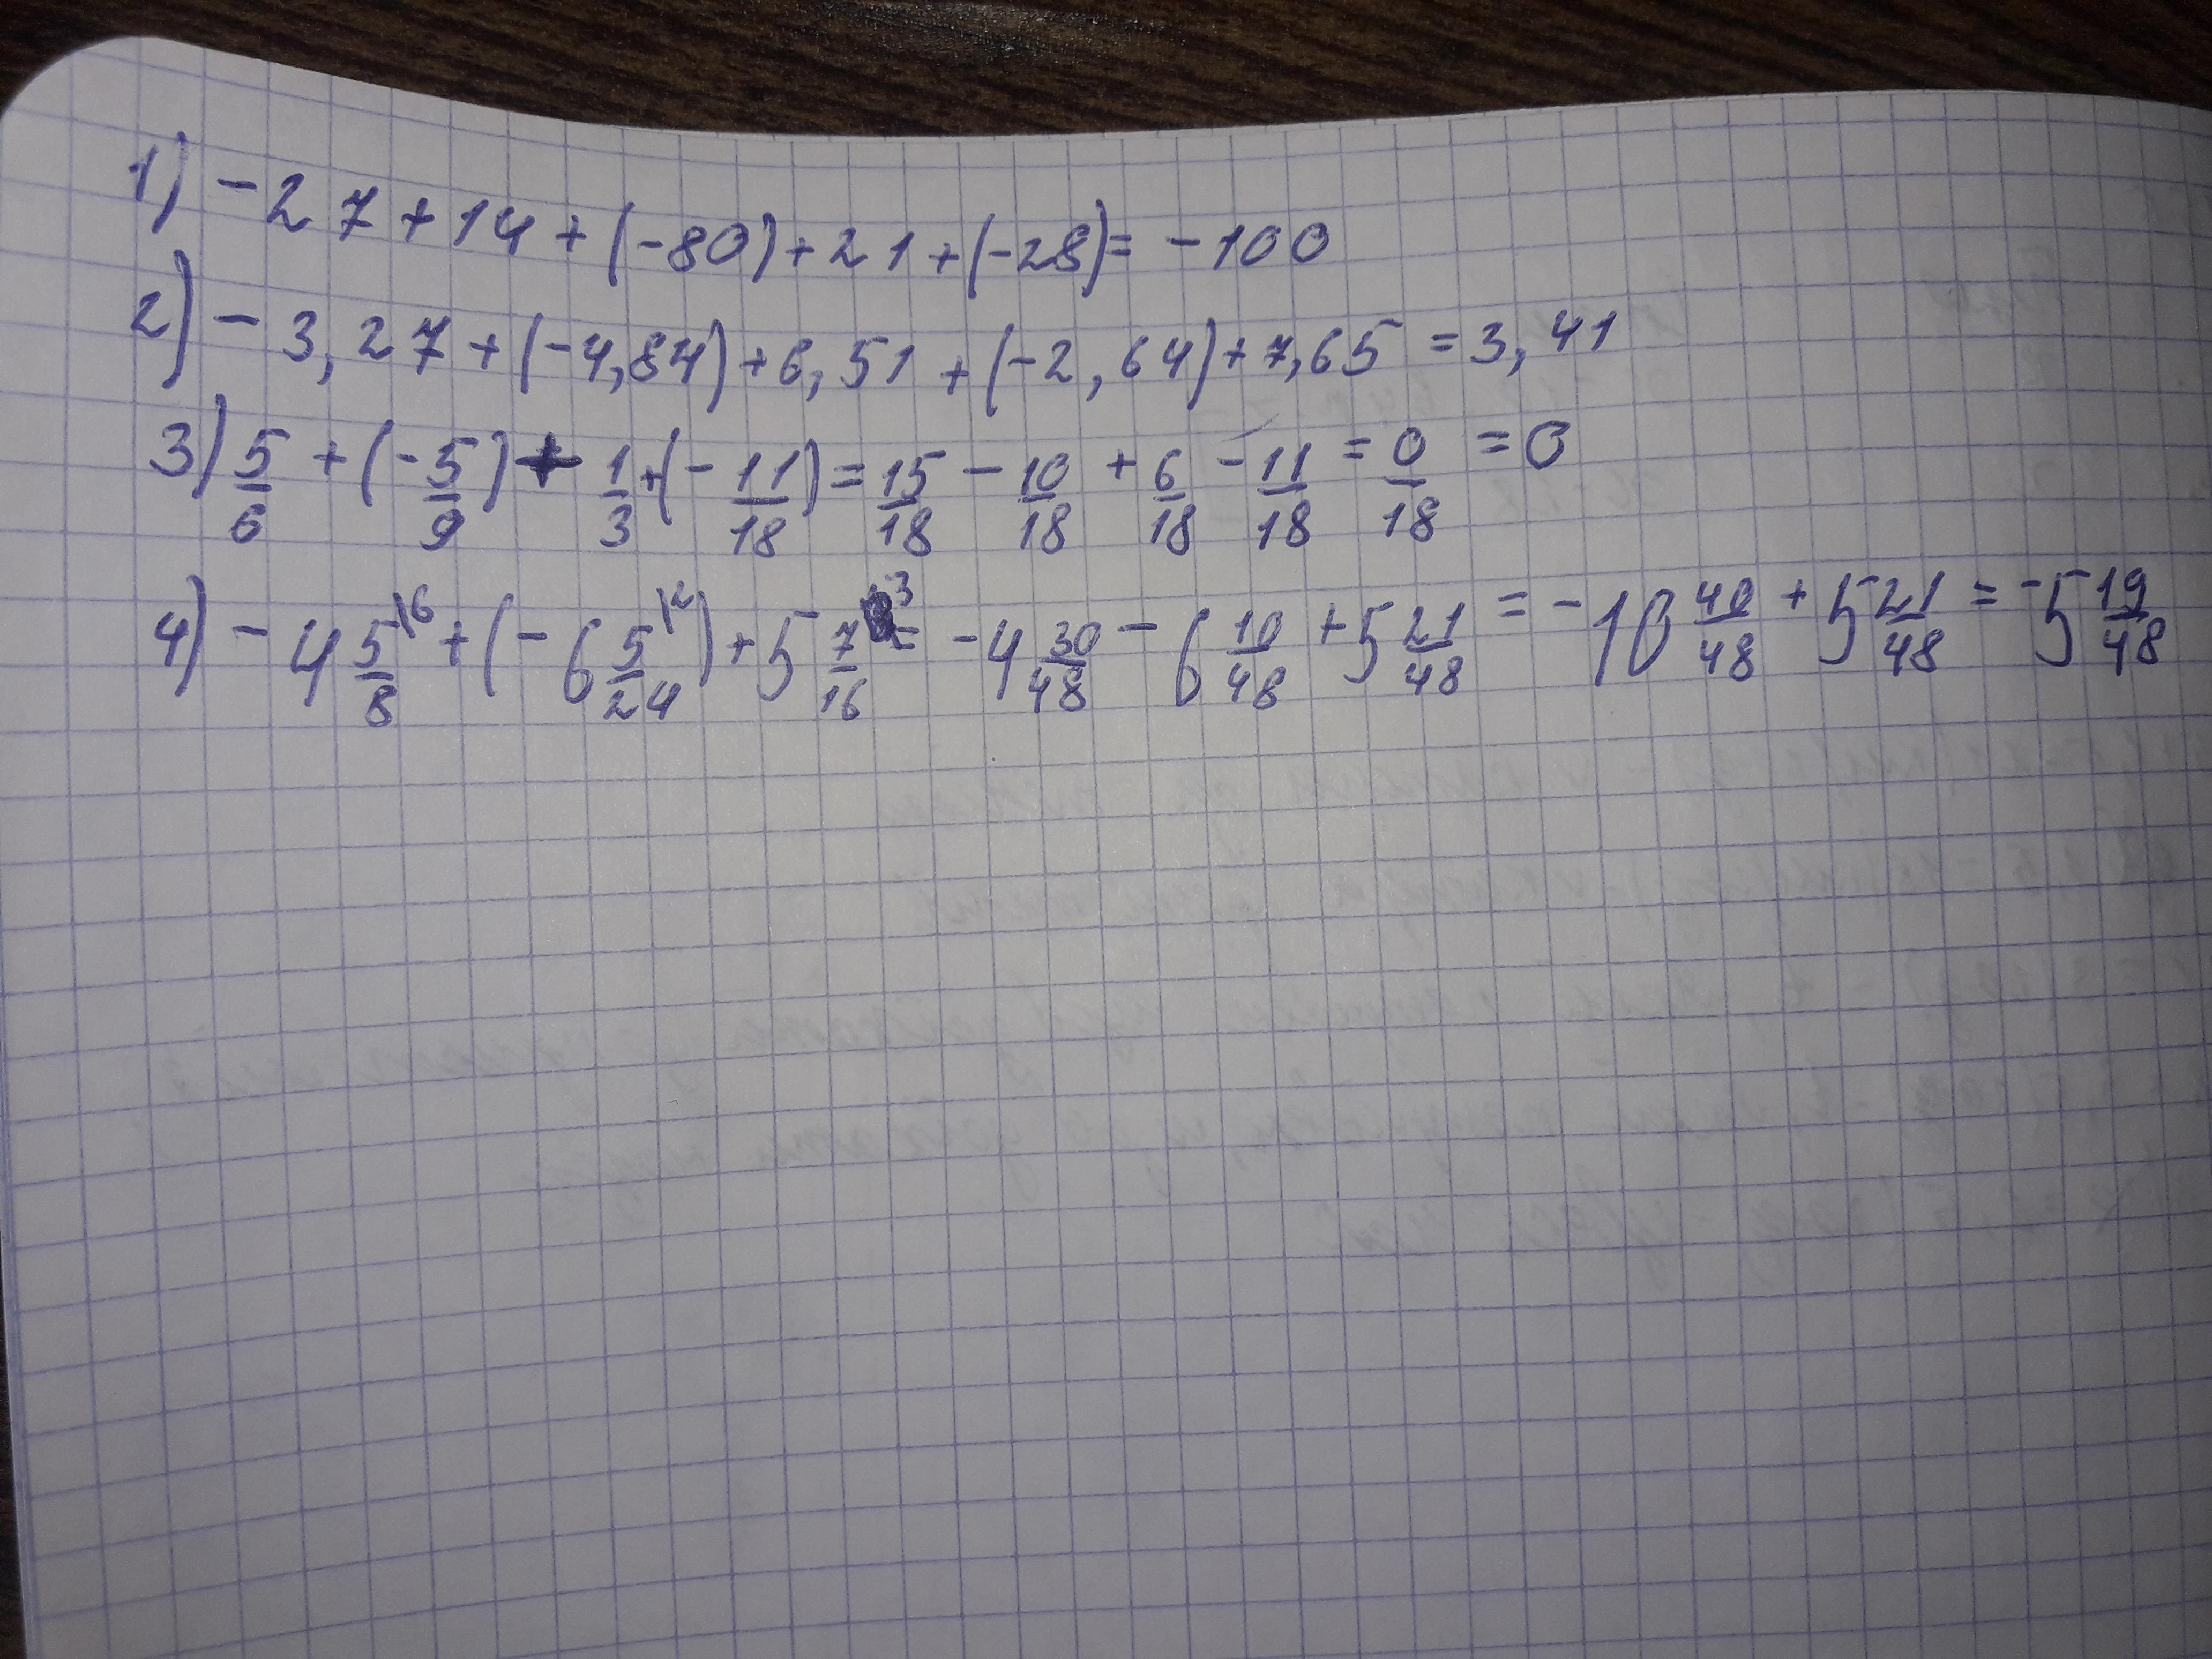 1) -27+14+(-80)+21+(-28)= -100
2) -3,27+(-4,84)+6,51+(-2,64)+7,65 = 3,41
3) 5/6 +(-5/9)+ 1/3+(-11/18)= 15/18 - 10/18 + 6/18 - 11/18 = 0/18 = 0
4) -4 5/8\6 +(-6 5/24\2)+5 7/16\3 = -4 30/48 - 6 10/48 +5 21/48 = -10 40/48 +5 21/48 = -5 19/48